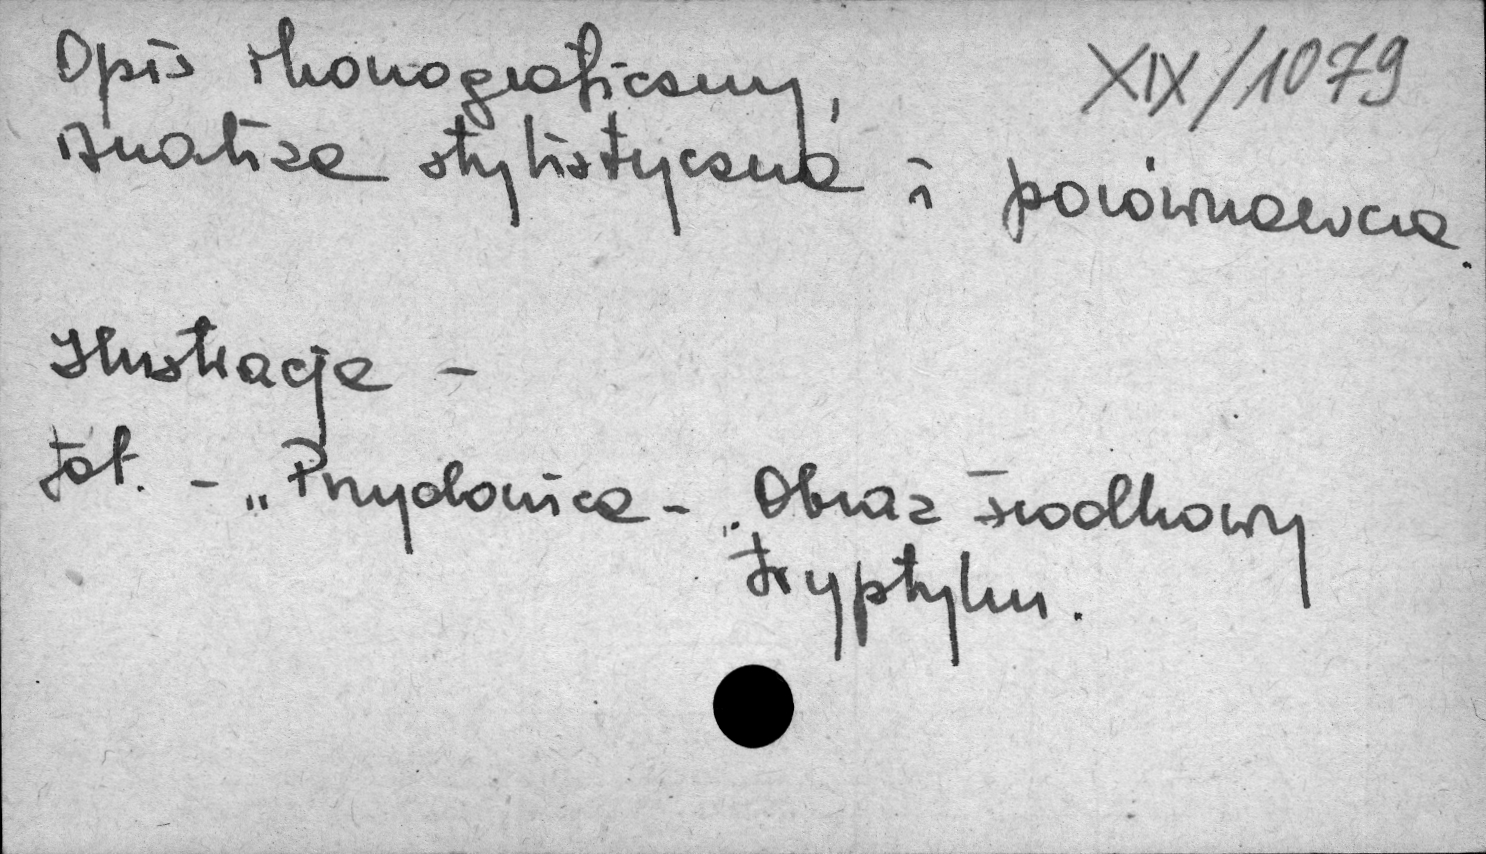 XIX/1079
Opis ikonograficzny,
analiza stylistyczna i porównawcza.
Ilustracje -
fot. - „Przydonica - Obraz środkowy
tryptyku.